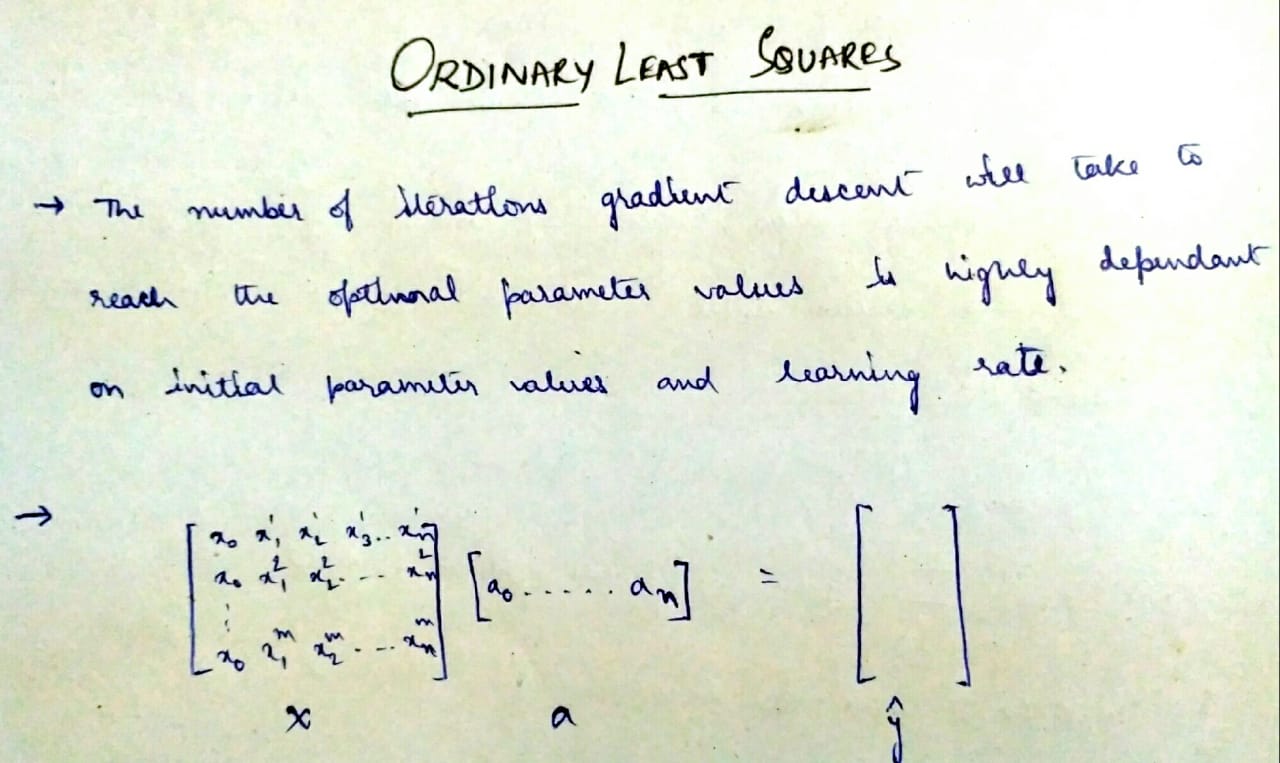 ORDINARY LEAST SQUARES
→ The number of iterations gradient descent will take to
reach the optimal parameter values is highly dependant
on initial parameter values and learning rate.
→ [x₀ x₁¹ x₂¹ x₃¹.. xₙ¹
x₀ x₁² x₂². ... xₙ²
⋮
x₀ x₁ᵐ x₂ᵐ. ... xₙᵐ] [a₀...... aₙ] = [ ]
x a ŷ